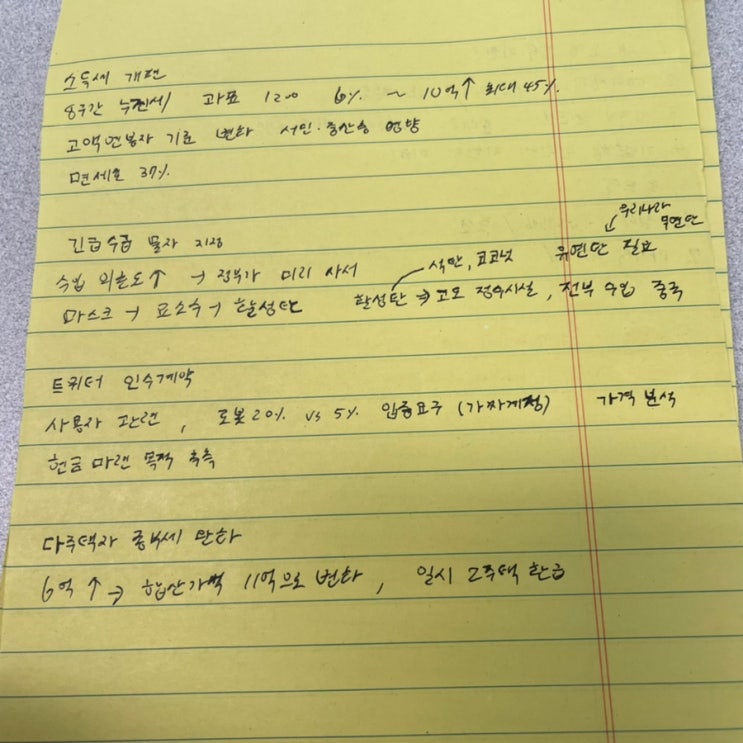 소득세 개편
8구간 누진세 과표 1200 6% ~ 10억↑ 최대 45%
고액연봉자 기료 변화 서민·중산층 영향
면세효 37%
긴급수급 물자 지정
우리나라 무연탄
수입 의존도↑ → 정부가 미리 사서
석탄, 코코넛 유연탄 필요
마스크 → 요소수 → 활성탄 활성탄 → 고도 정수시설, 전부 수입 중국
트위터 인수계약
사용자 관련, 로봇 20% vs 5% 입증요구 (가짜계정) 가격 분석
현금 마련 목적 추측
다주택자 종부세 완화
6억↑ → 합산가액 11억으로 변화, 일시 2주택 환급